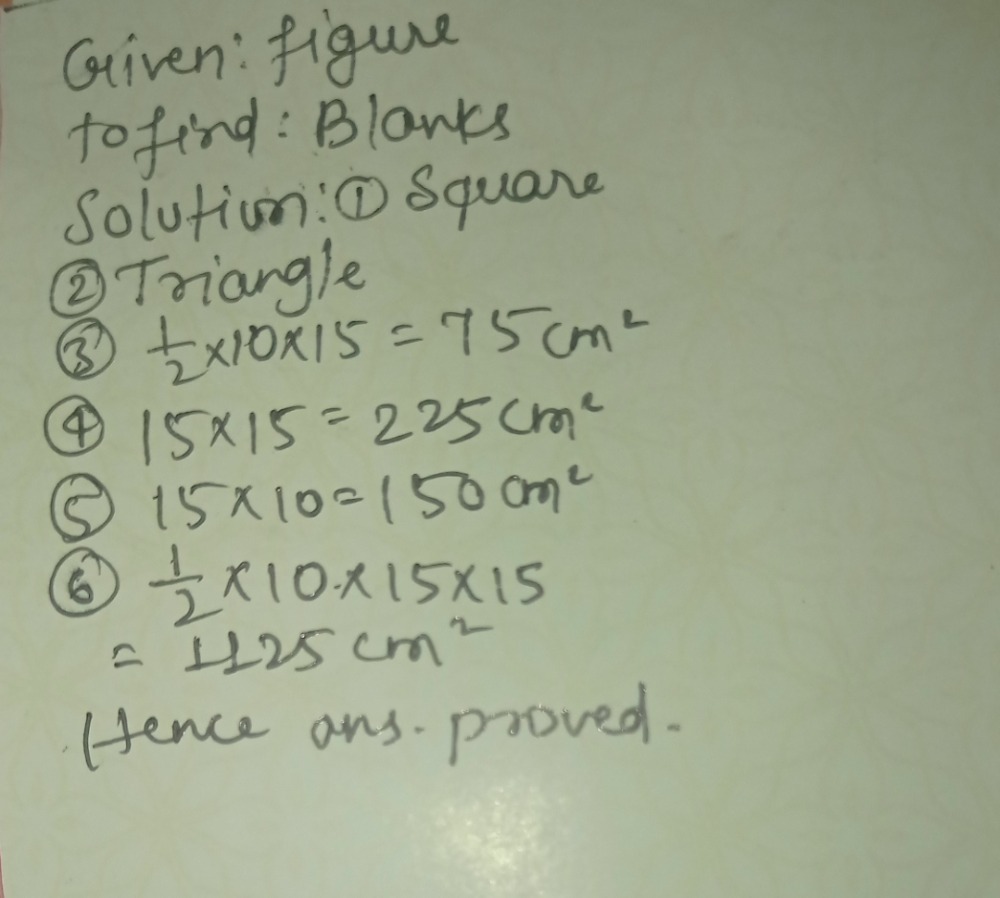 Given: figure
to find: Blanks
Solution: ① Square
② Triangle
③ 1/2 ×10×15 = 75 cm²
④ 15×15 = 225 cm²
⑤ 15×10 = 150 cm²
⑥ 1/2 ×10×15×15
= 1125 cm²
Hence ans. proved.